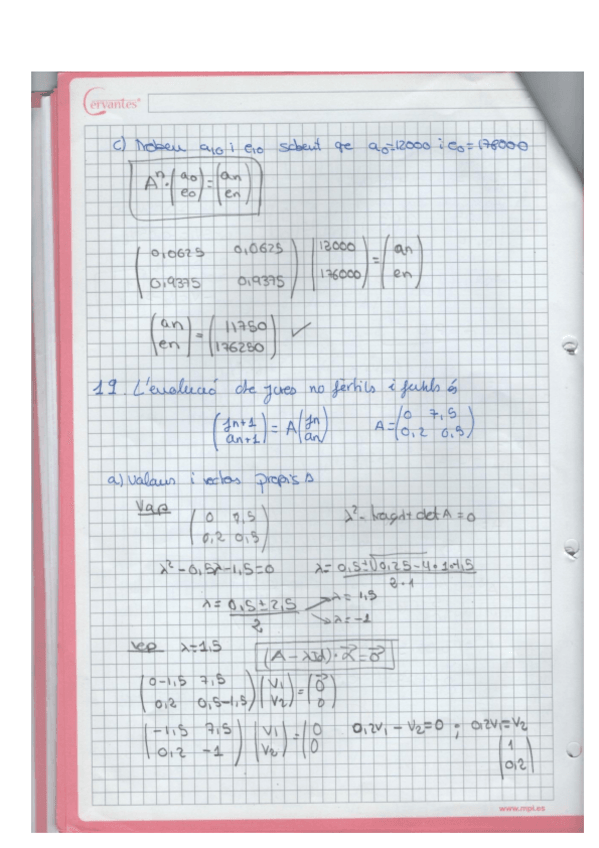 Cervantes
c) Trobeu a10 i e10 sabent que a0=12000 i e0=176000
Aⁿ·(a0 e0)=(an en)
(0,0625 0,0625
0,9375 0,9375) (12000
176000) = (an
en)
(an
en) = (11750
176250) ✓
19. L'evolució de joves no fèrtils i fèrtils és
(jn+1
an+1) = A(jn
an) A=(0 7,5
0,2 0,5)
a) Valors i vectors propis A
Vap (0 7,5
0,2 0,5) λ²-traçaλ+detA=0
λ²-0,5λ-1,5=0 λ=0,5±√0,25-4·1·1,5
2·1
λ=0,5±2,5 λ=1,5
2 λ=-1
Vep λ=1,5 (A-λId)·x=0
(0-1,5 7,5
0,2 0,5-1,5) (V1
V2) = (0
0)
(-1,5 7,5
0,2 -1) (V1
V2) = (0
0) 0,2V1-V2=0; 0,2V1=V2
(1
0,2)
www.mpi.es